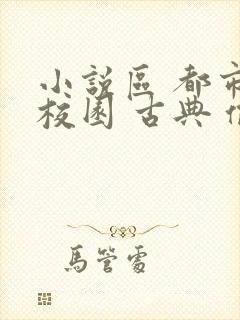 小說區 都市
校園 古典
馬管處